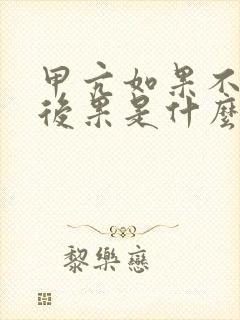 甲亢如果不
後果是什麼
黎樂戀